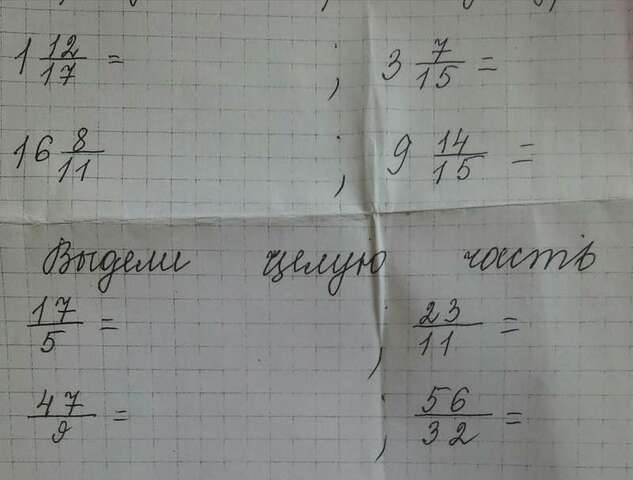 1 12/17 = ; 3 7/15 =
16 8/11 ; 9 14/15 =
Выдели целую часть
17/5 = ; 23/11 =
47/9 = ; 56/32 =